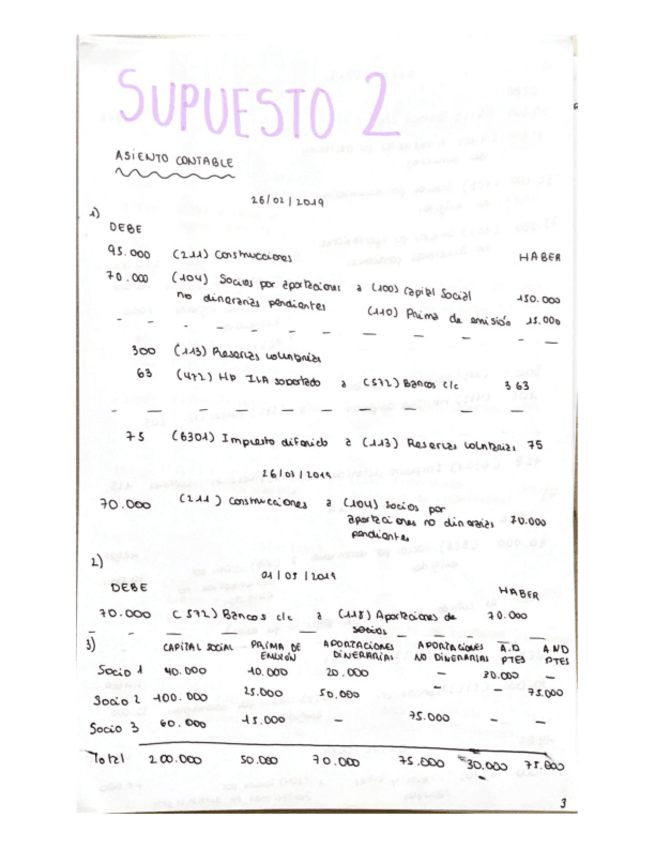 SUPUESTO 2
ASIENTO CONTABLE
26/02/2019
1)
DEBE
HABER
95.000 (211) Construcciones
70.000 (104) Socios por aportaciones a (100) Capital Social 150.000
no dinerarias pendientes (110) Prima de emisión 15.000
300 (113) Reservas voluntarias
63 (472) HP IVA soportado a (572) Bancos c/c 363
75 (6301) Impuesto diferido a (113) Reservas voluntarias 75
70.000 (211) Construcciones a (104) Socios por
aportaciones no dinerarias 70.000
pendientes
2)
DEBE
HABER
70.000 (572) Bancos c/c a (118) Aportaciones de 70.000
socios
3)
CAPITAL SOCIAL PRIMA DE APORTACIONES APORTACIONES A.D AND
EMISIÓN DINERARIAS NO DINERARIAS PTES PTES
Socio 1 40.000 10.000 20.000 — 30.000 —
Socio 2 100.000 25.000 50.000 — — 75.000
Socio 3 60.000 15.000 — 75.000 — —
Total 200.000 50.000 70.000 75.000 30.000 75.000
3